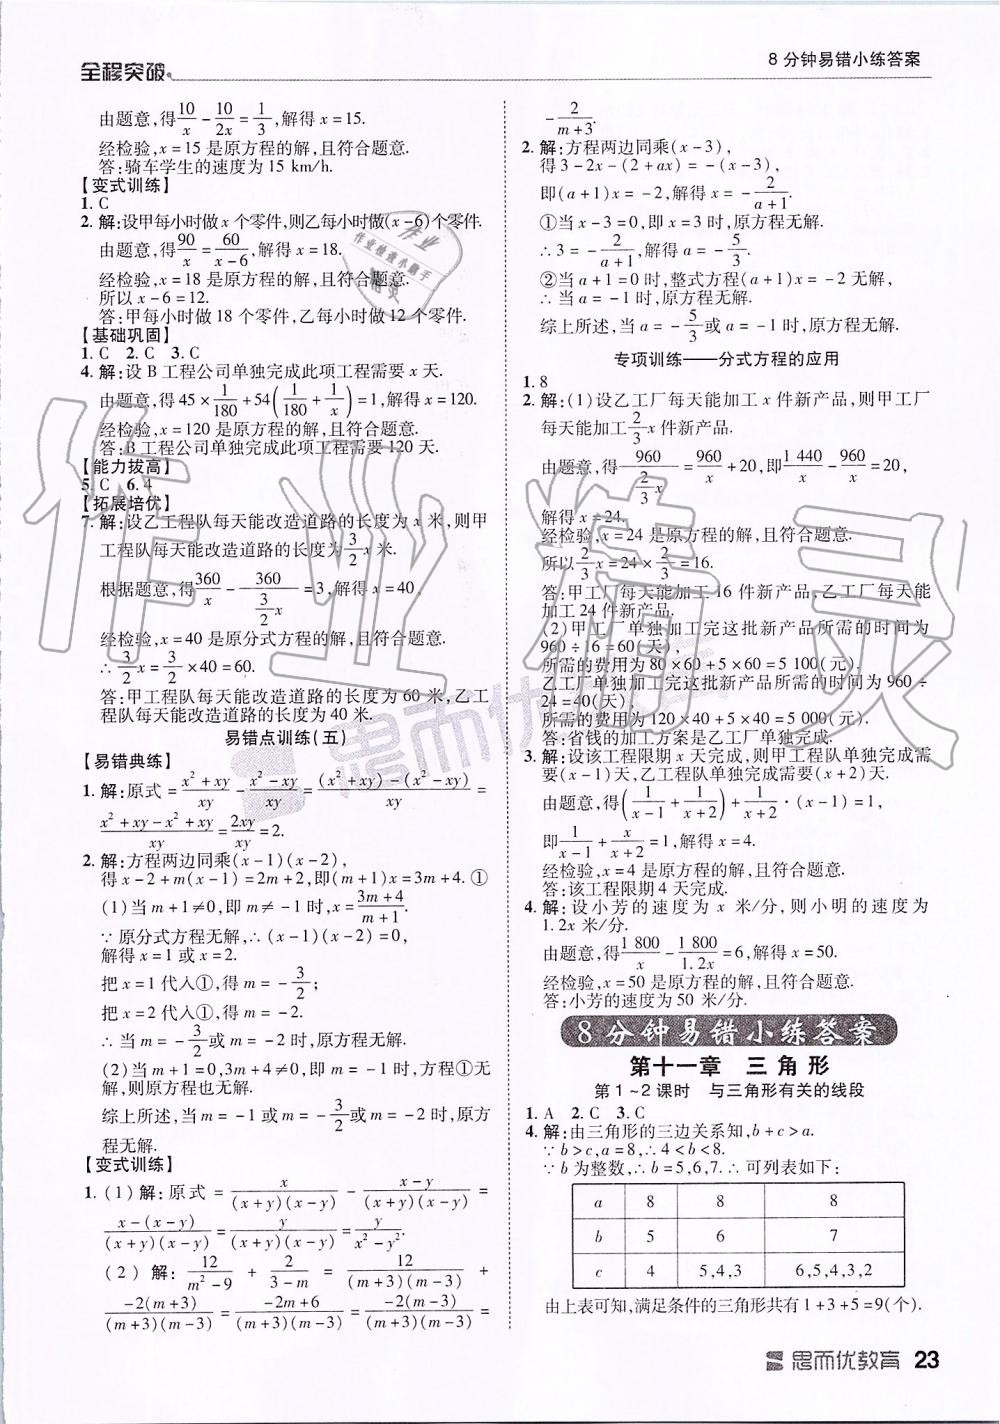 全程突破
8分钟易错小练答案
由题意,得10/x-10/2x=1/3,解得x=15.
经检验,x=15是原方程的解,且符合题意.
答:骑车学生的速度为15 km/h.
【变式训练】
1. C
2. 解:设甲每小时做x个零件,则乙每小时做(x-6)个零件.
由题意,得90/x=60/(x-6),解得x=18.
经检验,x=18是原方程的解,且符合题意.
所以x-6=12.
答:甲每小时做18个零件,乙每小时做12个零件.
【基础巩固】
1. C 2. C 3. C
4. 解:设B工程公司单独完成此项工程需要x天.
由题意,得45×1/180+54(1/180+1/x)=1,解得x=120.
经检验,x=120是原方程的解,且符合题意.
答:B工程公司单独完成此项工程需要120天.
【能力拔高】
5. C 6. 4
【拓展培优】
7. 解:设乙工程队每天能改造道路的长度为x米,则甲
工程队每天能改造道路的长度为3/2x米.
根据题意,得360/x-360/(3/2x)=3,解得x=40.
经检验,x=40是原分式方程的解,且符合题意.
∴3/2x=3/2×40=60.
答:甲工程队每天能改造道路的长度为60米,乙工
程队每天能改造道路的长度为40米.
易错点训练(五)
【易错典练】
1. 解:原式=(x²+xy)/xy-(x²-xy)/xy=((x²+xy)-(x²-xy))/xy=
(x²+xy-x²+xy)/xy=2xy/xy=2.
2. 解:方程两边同乘(x-1)(x-2),
得x-2+m(x-1)=2m+2,即(m+1)x=3m+4.①
(1)当m+1≠0,即m≠-1时,x=(3m+4)/(m+1).
∵原分式方程无解,∴(x-1)(x-2)=0,
解得x=1或x=2.
把x=1代入①,得m=-3/2;
把x=2代入①,得m=-2.
∴当m=-3/2或m=-2时,原方程无解.
(2)当m+1=0,3m+4≠0时,方程①无
解,则原方程也无解.
综上所述,当m=-1或m=-3/2或m=-2时,原方
程无解.
【变式训练】
1. (1)解:原式=x/((x+y)(x-y))-(x-y)/((x+y)(x-y))=
(x-(x-y))/((x+y)(x-y))=y/((x+y)(x-y))=y/(x²-y²).
(2)解:12/(m²-9)+2/(3-m)=12/((m+3)(m-3))+
-2(m+3)/((m+3)(m-3))=(-2m+6)/((m+3)(m-3))=-2(m-3)/((m+3)(m-3))=
-2/(m+3).
2. 解:方程两边同乘(x-3),
得3-2x-(2+ax)=-(x-3),
即(a+1)x=-2,解得x=-2/(a+1).
①当x-3=0,即x=3时,原方程无解.
∴3=-2/(a+1),解得a=-5/3.
②当a+1=0时,整式方程(a+1)x=-2无解,
∴当a=-1时,原方程无解.
综上所述,当a=-5/3或a=-1时,原方程无解.
专项训练——分式方程的应用
1. 8
2. 解:(1)设乙工厂每天能加工x件新产品,则甲工厂
每天能加工2/3x件新产品.
由题意,得960/(2/3x)=960/x+20,即1 440/x-960/x=20,
解得x=24.
经检验,x=24是原方程的解,且符合题意.
所以2/3x=24×2/3=16.
答:甲工厂每天能加工16件新产品,乙工厂每天能
加工24件新产品.
(2)甲工厂单独加工完这批新产品所需的时间为
960÷16=60(天),
所需的费用为80×60+5×60=5 100(元).
乙工厂单独加工完这批新产品所需的时间为960÷
24=40(天),
所需的费用为120×40+5×40=5 000(元).
答:省钱的加工方案是乙工厂单独完成.
3. 解:设该工程限期x天完成,则甲工程队单独完成需
要(x-1)天,乙工程队单独完成需要(x+2)天.
由题意,得(1/(x-1)+1/(x+2))+1/(x+2)·(x-1)=1,
即1/(x-1)+x/(x+2)=1,解得x=4.
经检验,x=4是原方程的解,且符合题意.
答:该工程限期4天完成.
4. 解:设小芳的速度为x米/分,则小明的速度为
1.2x米/分.
由题意,得1 800/x-1 800/1.2x=6,解得x=50.
经检验,x=50是原方程的解,且符合题意.
答:小芳的速度为50米/分.
8分钟易错小练答案
第十一章 三角形
第1~2课时 与三角形有关的线段
1. A 2. C 3. C
4. 解:由三角形的三边关系知,b+c>a.
∵b>c,a=8,∴4<b<8.
∵b为整数,∴b=5,6,7.∴可列表如下:
a 8 8 8
b 5 6 7
c 4 5,4,3 6,5,4,3,2
由上表可知,满足条件的三角形共有1+3+5=9(个).
思而优教育 23
作业精灵
思而优教育
作业
作业检查小助手
精灵